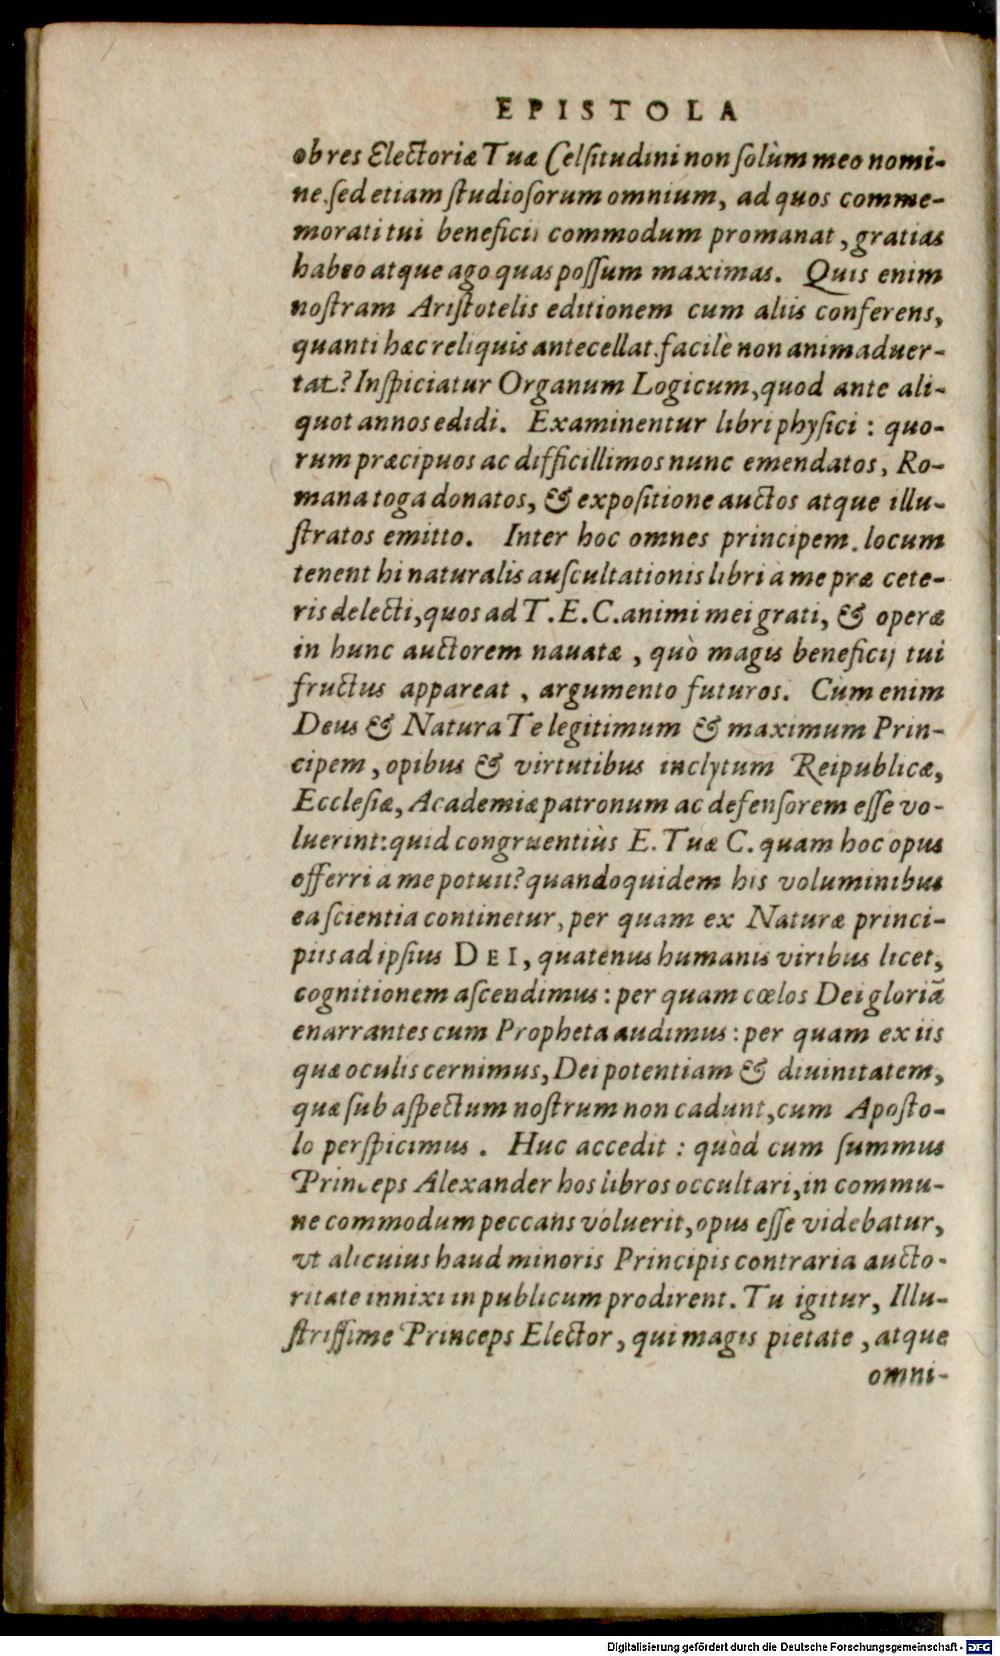 EPISTOLA
ob res Electoriæ Tuæ Celſitudini non ſolùm meo nomi-
ne, ſed etiam ſtudioſorum omnium, ad quos comme-
morati tui beneficii commodum promanat, gratias
habeo atque ago quas poſſum maximas. Quis enim
noſtram Ariſtotelis editionem cum aliis conferens,
quanti hæc reliquis antecellat, facilè non animaduer-
tat? Inſpiciatur Organum Logicum, quod ante ali-
quot annos edidi. Examinentur libri phyſici: quo-
rum præcipuos ac difficillimos nunc emendatos, Ro-
mana toga donatos, & expoſitione auctos atque illu-
ſtratos emitto. Inter hoc omnes principem. locum
tenent hi naturalis auſcultationis libri a me præ cete-
ris delecti, quos ad T. E. C. animi mei grati, & operæ
in hunc auctorem nauatæ, quò magis beneficij tui
fructus appareat, argumento futuros. Cùm enim
Deus & Natura Te legitimum & maximum Prin-
cipem, opibus & virtutibus inclytum Reipublicæ,
Eccleſiæ, Academiæ patronum ac defenſorem eſſe vo-
luerint: quid congruentiùs E. Tuæ C. quam hoc opus
offerri a me potuit? quandoquidem his voluminibus
ea ſcientia continetur, per quam ex Naturæ princi-
piis ad ipſius DEI, quatenus humanis viribus licet,
cognitionem aſcendimus: per quam cœlos Dei gloriã
enarrantes cum Propheta audimus: per quam ex iis
quæ oculis cernimus, Dei potentiam & diuinitatem,
quæ ſub aſpectum noſtrum non cadunt, cum Apoſto-
lo perſpicimus. Huc accedit: quòd cum ſummus
Princeps Alexander hos libros occultari, in commu-
ne commodum peccans voluerit, opus eſſe videbatur,
vt alicuius haud minoris Principis contraria aucto-
ritate innixi in publicum prodirent. Tu igitur, Illu-
ſtriſſime Princeps Elector, qui magis pietate, atque
omni-
Digitalisierung gefördert durch die Deutsche Forschungsgemeinschaft - DFG